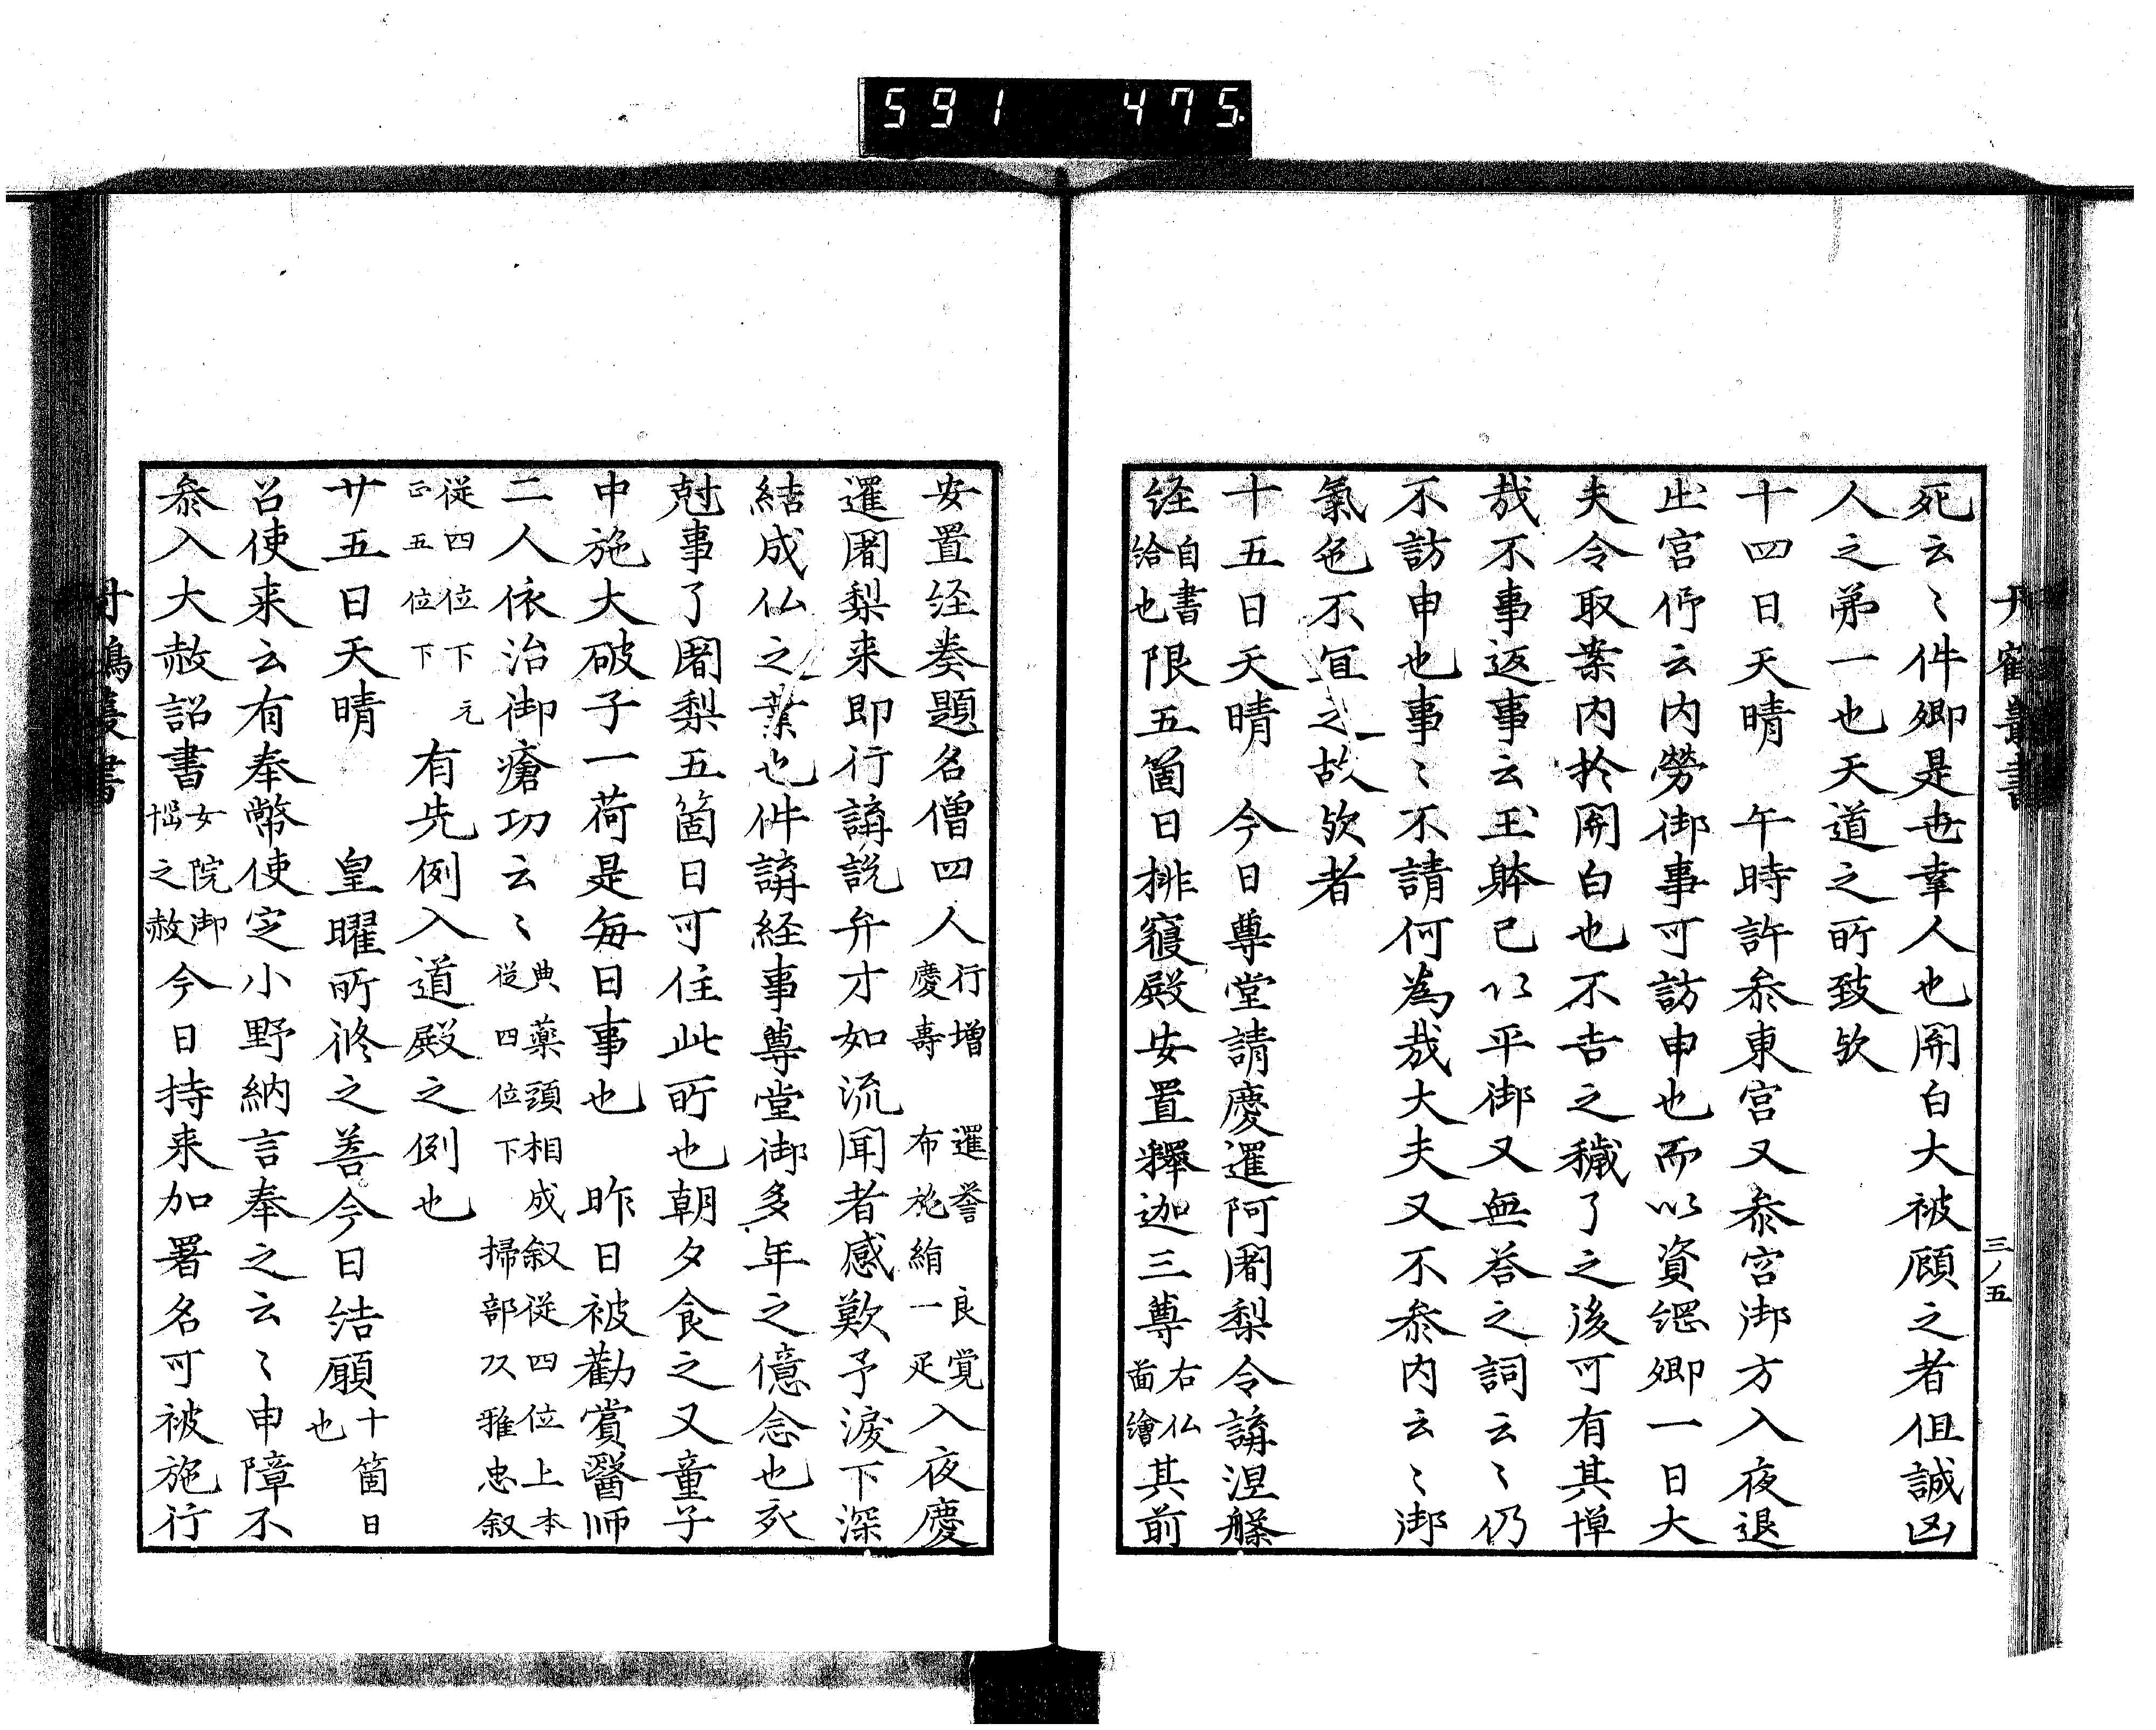 591 475
丹鶴叢書
三ノ五
死云〻件卿是也幸人也関白大被顧之者但誠凶
人之弟一也天道之所致欤
十四日天晴 午時許参東宮又参宮御方入夜退
出宮仰云内労御事可訪申也而以資綱卿一日大
夫令取案内於関白也不告之穢了之後可有其憚
哉不事返事云玉躰已以平御又無答之詞云〻仍
不訪申也事〻不請何為哉大夫又不参内云〻御
氣色不宜之故欤者
十五日天晴 今日尊堂請慶暹阿闍梨令講涅槃
経自書給也限五箇日排寝殿安置釋迦三尊右仏啚繪其前
安置経奏題名僧四人行増 暹誉 良覚慶壽 布施絹一疋入夜慶
暹闍梨来即行講説弁才如流聞者感歎予涙下深
結成仏之業也件講経事尊堂御多年之億念也死
尅事了闍梨五箇日可住此所也朝夕食之又童子
中施大破子一荷是毎日事也 昨日被勸賞醫師
二人依治御瘡功云〻典薬頭相成叙従四位上本従四位下 掃部頭雅忠叙
従四位下元正五位下有先例入道殿之例也
廿五日天晴 皇曜所修之善今日结願十箇日也
召使来云有奉幣使定小野納言奉之云〻申障不
参入大赦詔書女院御悩之赦今日持来加署名可被施行